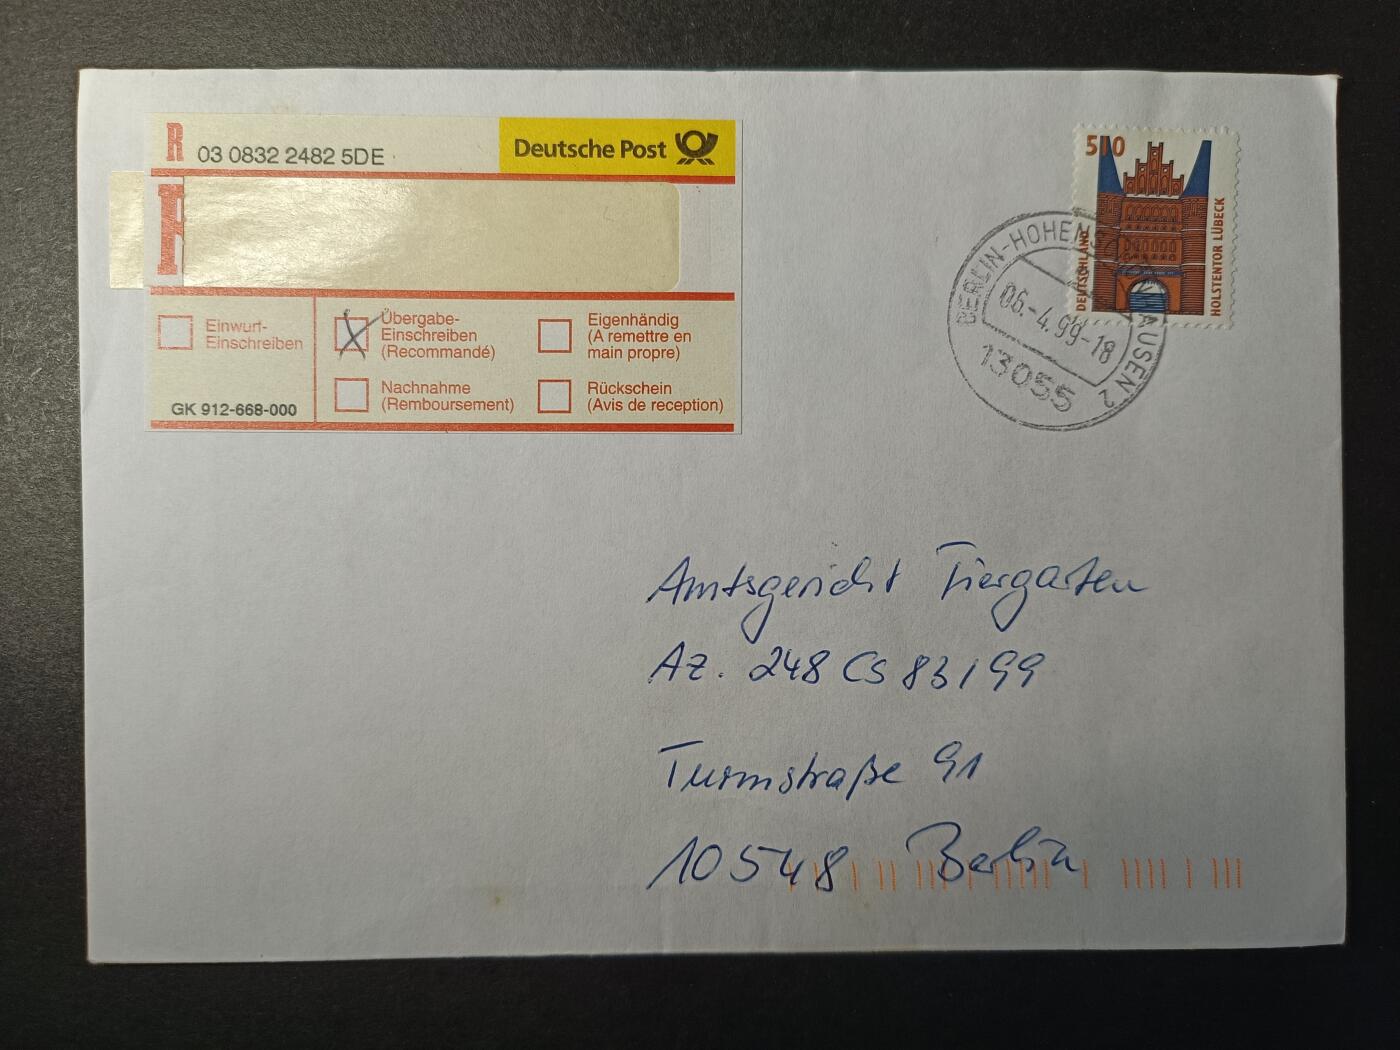 R 03 0832 2482 5DE
Deutsche Post
Einwurf-
Einschreiben
Übergabe-
Einschreiben
(Recommandé)
Eigenhändig
(A remettre en
main propre)
Nachnahme
(Remboursement)
Rückschein
(Avis de reception)
GK 912-668-000
510
DEUTSCHLAND
HOLSTENTOR LÜBECK
06.-4.99-18
13055
Amtsgericht Tiergarten
Az. 248 Cs 83/99
Turmstraße 91
10548 Berlin